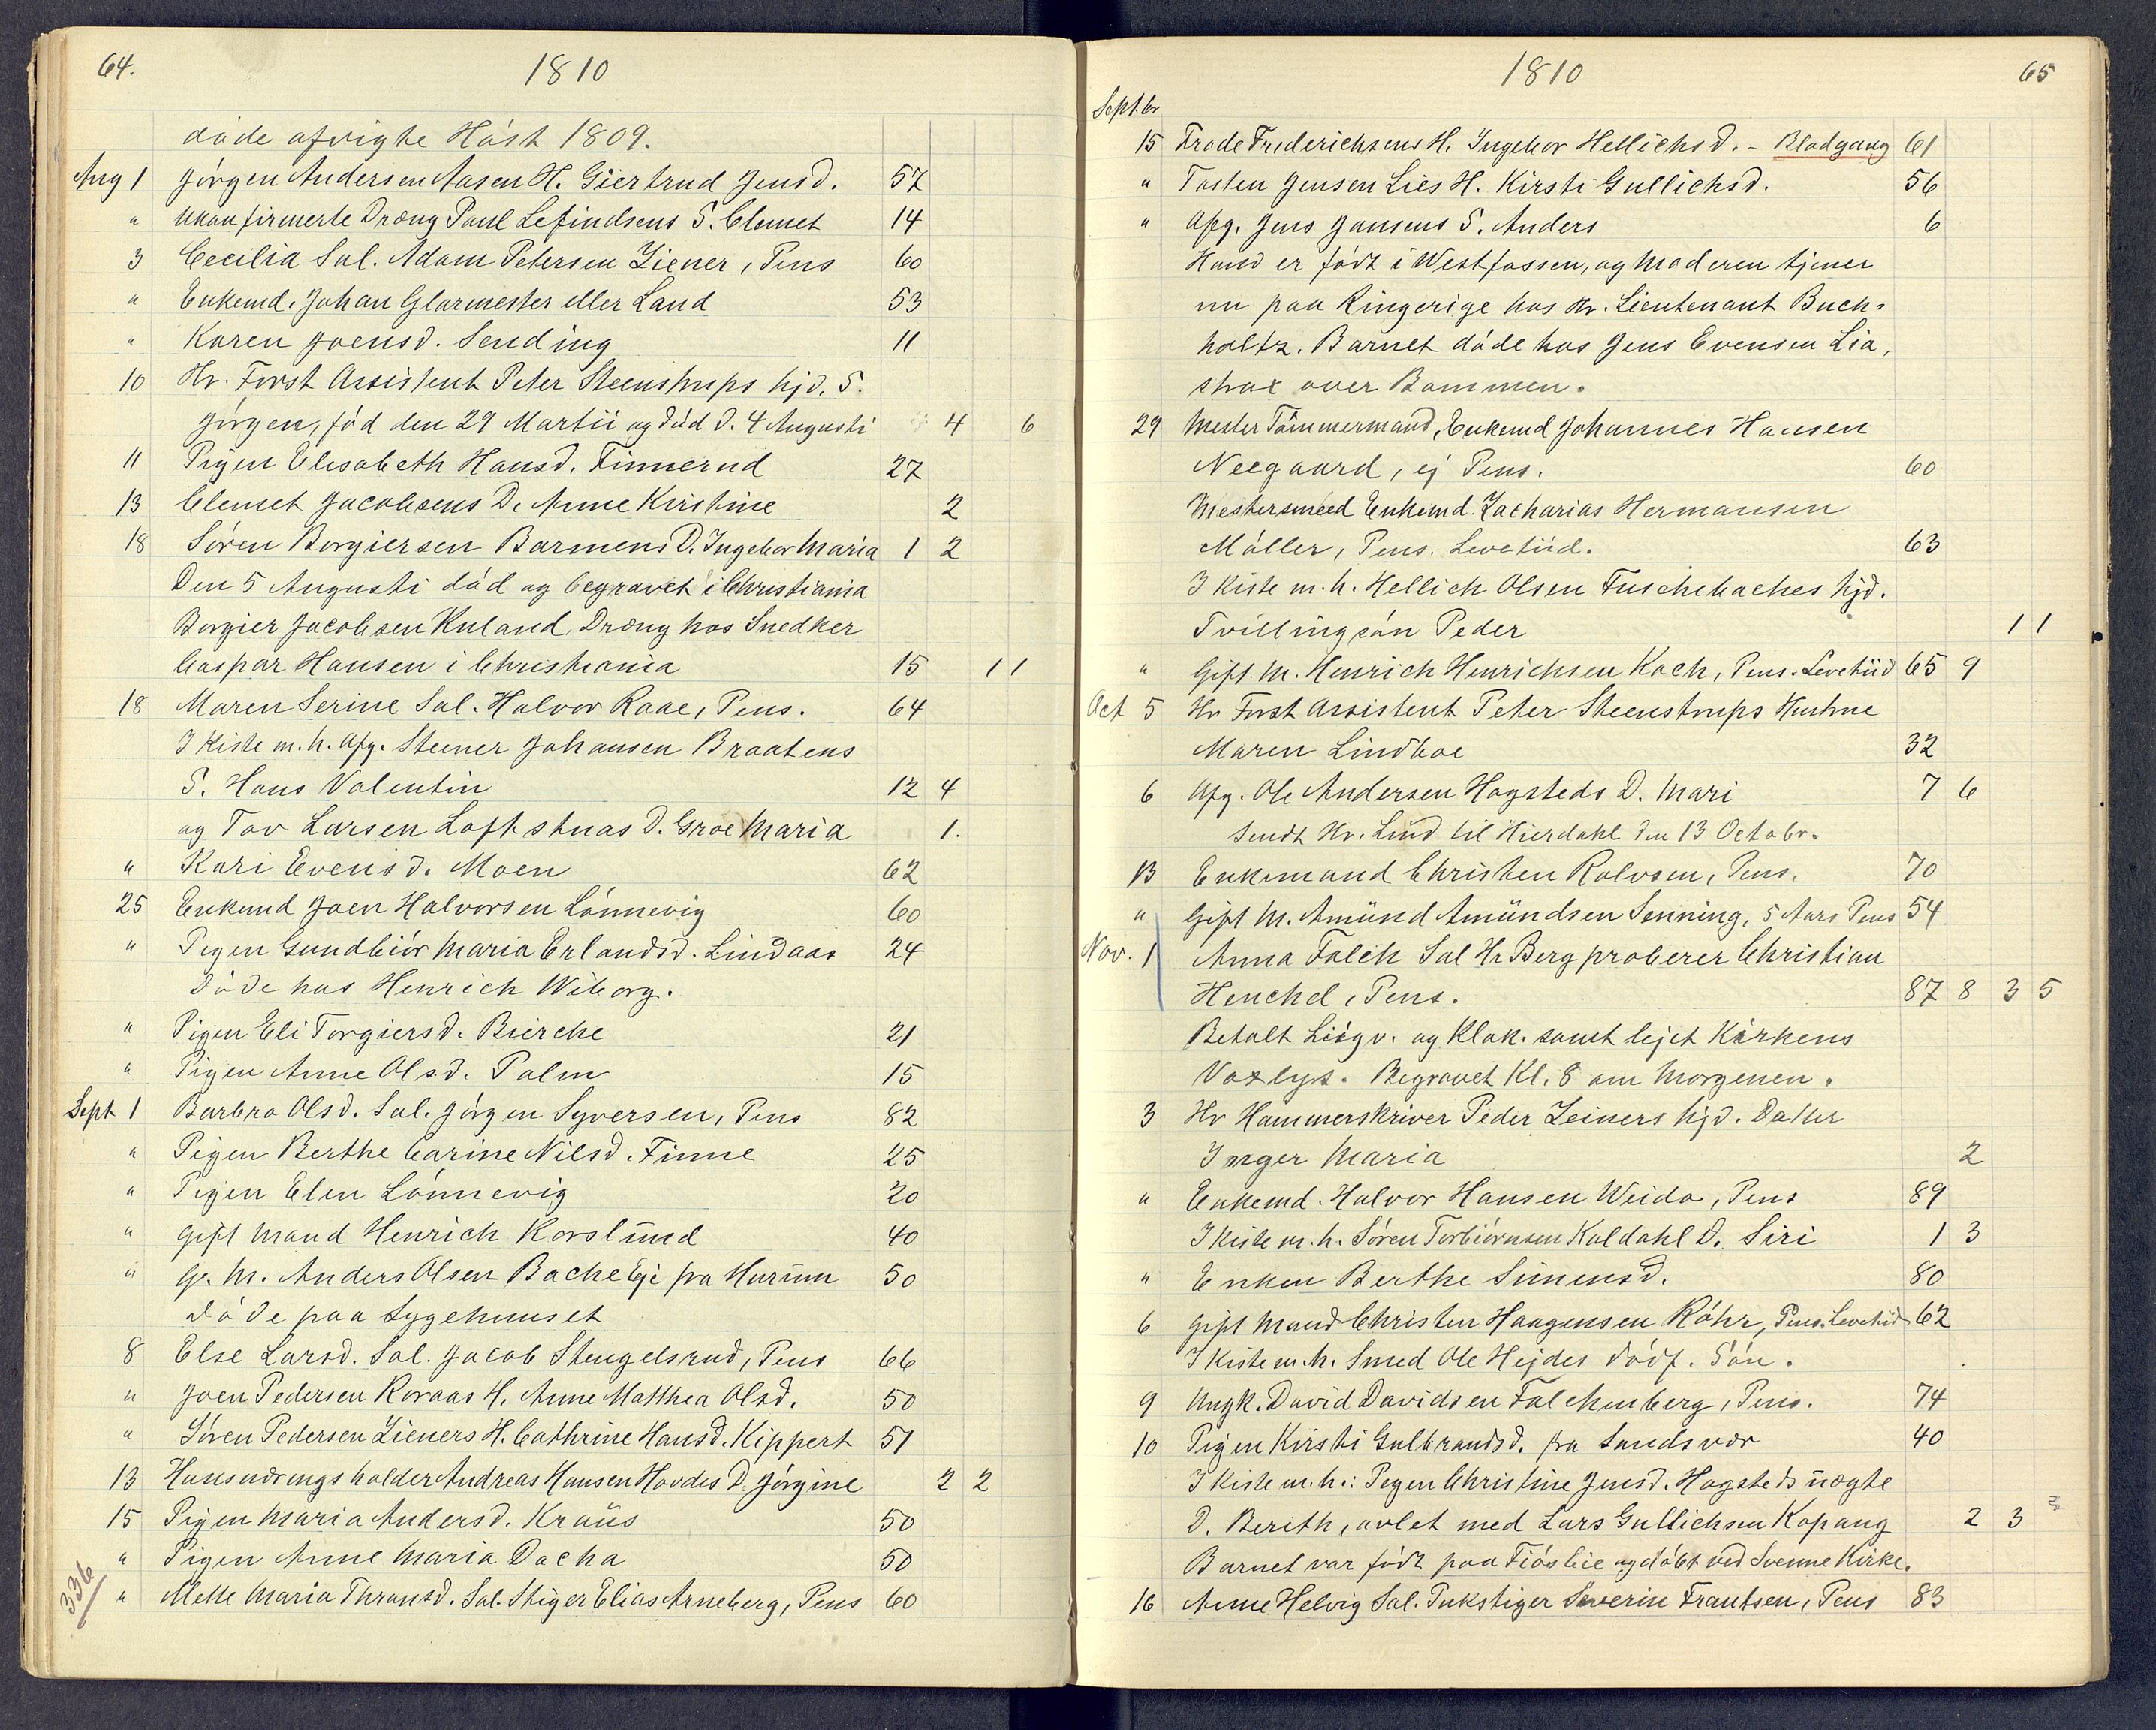 64.
1810
døde afvigte Høst 1809.
Aug 1 Jørgen Andersen Aasen H. Giertrud Jensd. 57
" ukonfirmerte Dræng Paul Lefindsens S. Clemet 14
3 Cecilia Sal. Adam Petersen Ziener, Pens 60
" Enkemd. Johan Glarmester eller Land 53
" Karen Joensd. Sending 11
10 Hr. Forst Assistent Peter Steenstrups hjd. S.
Jørgen, fød den 29 Martii og død d. 4 Augusti 4 6
11 Pigen Elisabeth Hansd. Finnerud 27
13 Clemet Jacobsens D. Anne Kirstine 2
18 Søren Borgiersen Barmens D. Ingebor Maria 1 2
Den 5 Augusti død og begravet i Christiania
Borgier Jacobsen Ruland, Dræng hos Snedker
Caspar Hansen i Christiania 15 11
18 Maren Serine Sal. Halvor Raae, Pens. 64
I Kiste m. h. Afg. Steener Johansen Braatens
S. Hans Valentin 12 4
og Tov Larsen Loftstuas D. Groe Maria 1.
" Kari Evensd. Moen 62
25 Enkemd Joen Halvorsen Lønnevig 60
" Pigen Gundbiør Maria Erlandsd. Lindaas 24
døde hos Henrich Wiborg.
" Pigen Eli Torgiersd. Bierche 21
" Pigen Anne Olsd. Palm 15
Sept 1 Barbra Olsd. Sal. Jørgen Syversen, Pens 82
" Pigen Berthe Carine Nilsd. Finne 25
" Pigen Elen Lønnevig 20
" gift Mand Henrich Korslund 40
" G. M. Anders Olsen Bache Eje fra Hurum 50
døde paa Sygehuuset
8 Else Larsd. Sal. Jacob Stengelsrud, Pens 66
" Joen Pedersen Kovaas H. Anne Matthea Olsd. 50
" Søren Pedersen Zieners H. Cathrine Hansd. Kippert 51
13 Husnæringsholder Andreas Hansen Hovdes D. Jørgine 2 2
15 Pigen Maria Andersd. Kraus 50
" Pigen Anne Maria Dacha 50
" Mette Maria Thransd. Sal. Stiger Elias Arneberg, Pens 60
336
1810
65
Septbr
15 Frode Friderichsens H. Ingebor Hellichsd. - Blodgang 61
" Tosten Jensen Lies H. Kirsti Gullichsd. 56
" Afg. Jens Jansens S. Anders 6
Hand er født i Westfossen, og Moderen tjener
nu paa Ringerige hos Hr. Lieutenant Buch-
holtz. Barnet døde hos Jens Evensen Lia,
strax over Bommen.
29 Mester Tømmermand, Enkemd Johannes Hansen
Neegaard, ej Pens. 60
Mestersmeed Enkemd. Zacharias Hermansen
Møller, Pens. Levetiid. 63
I Kiste m. h. Hellich Olsen Fuschebaches hjd.
Tvillingsøn Peder 11
" Gift. M. Henrich Henrichsen Koch, Pens. Levetiid 65 9
Oct 5 Hr Forst Assistent Peter Steenstrups Hustrue
Maren Lindboe 32
6 Afg. Ole Andersen Hagsteds D. Mari 7 6
Sendt Hr. Lind til Hierdahl den 13 Octobr.
13 Enkemand Christen Rolvsen, Pens. 70
" Gift M. Amünd Amündsen Senning, 5 Aars Pens 54
Nov. 1 Anna Falch Sal Hr Bergproberer Christian
Henchel, Pens. 87 8 3 5
Betalt Liigv. og Klok. samt lejet Kirkens
Voxlys. Begravet Kl. 8 om Morgenen.
3 Hr Hammerskriver Peder Zeiners hjd. Datter
Inger Maria 2
" Enkemd. Halvor Hansen Weida, Pens 89
I Kiste m. h. Søren Torbiørnsen Koldahl D. Siri 1 3
" Enken Berthe Simensd. 80
6 gift Mand Christen Haagensen Røhr, Pens. Levetiid 62
I Kiste m. h. Smed Ole Hejdes dødf. Søn.
9 Ungk. David Davidsen Falchenberg, Pens. 74
10 Pigen Kirsti Gulbrandsd. fra Sandsvær 40
I Kiste m. h.: Pigen Christine Jensd. Hagsteds uægte
D. Berith, avlet med Lars Gullichsen Kopang 2 3
Barnet var født paa Fiøslie og døbt ved Svenne Kirke.
16 Anne Helvig Sal. Pukstiger Severin Frantsen, Pens 83